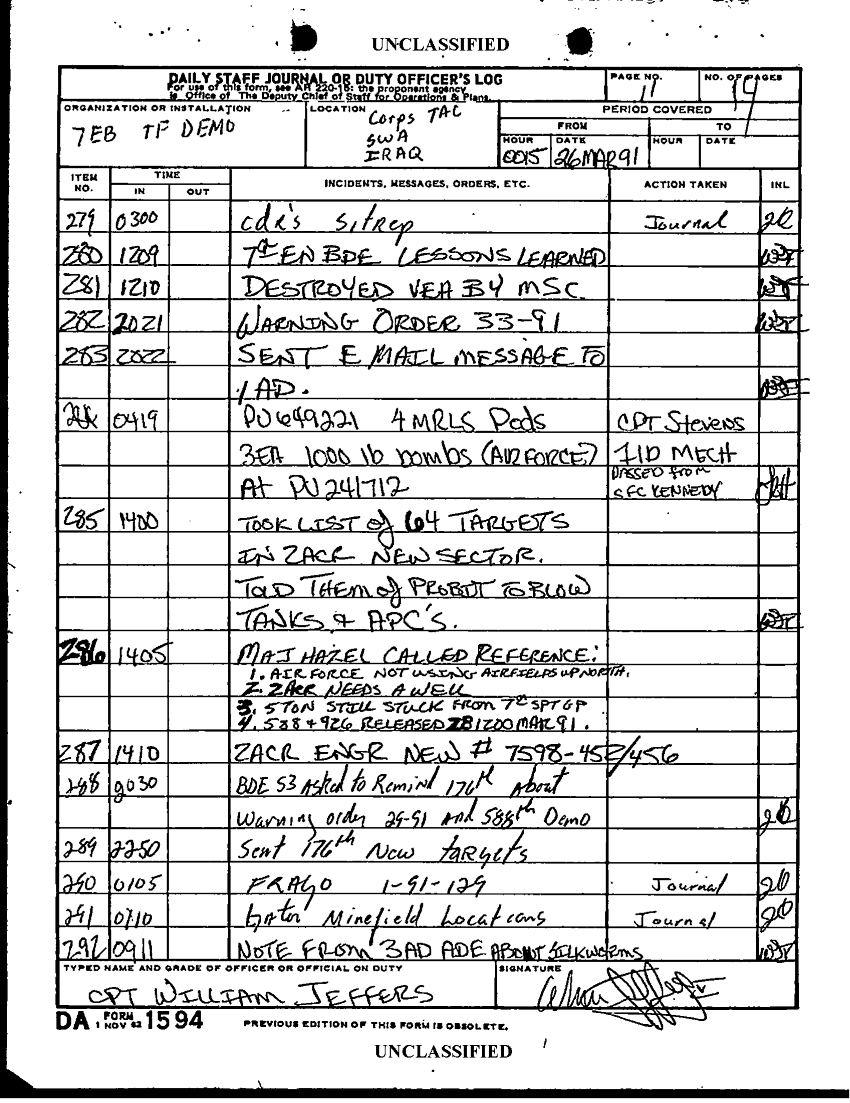 UNCLASSIFIED
DAILY STAFF JOURNAL OR DUTY OFFICER'S LOG
For use of this form, see AR 220-15: the proponent agency
is Office of The Deputy Chief of Staff for Operations & Plans.
PAGE NO.
11
NO. OF PAGES
14
ORGANIZATION OR INSTALLATION
7EB TF DEMO
LOCATION
Corps TAC
SWA
IRAQ
PERIOD COVERED
FROM
TO
HOUR
DATE
HOUR
DATE
0015
26MAR91
ITEM NO.
TIME
IN
OUT
INCIDENTS, MESSAGES, ORDERS, ETC.
ACTION TAKEN
INL
279 0300 cdr's sitrep Journal
280 1209 7th EN BDE LESSONS LEARNED
281 1210 DESTROYED VEH BY MSC
282 2021 WARNING ORDER 33-91
283 2022 SENT E MAIL MESSAGE TO
1 AD.
0419 PU649221 4 MRLS Pods CPT Stevens
3EA 1000 lb bombs (AIR FORCE) 1ID MECH
At PU241712 PASSED from
SFC KENNEDY
285 1400 TOOK LIST of 64 TARGETS
IN 2ACR NEW SECTOR.
TOLD THEM of PROBOT TO BLOW
TANKS & APC'S.
286 1405 MAJ HAZEL CALLED REFERENCE:
1. AIR FORCE NOT USING AIRFIELDS UP NORTH.
2. 2ACR NEEDS A WELL
3. 5 TON STILL STUCK FROM 7th SPT GP
4. 588 + 926 RELEASED 281200MAR91.
287 1410 2ACR ENGR NEW # 7598-452/456
288 2030 BDE S3 Asked to Remind 176th About
Warning order 29-91 And 588th Demo
289 2250 Sent 176th New targets
290 0105 FRAGO 1-91-129 Journal
291 0710 Gator Minefield Locations Journal
292 0911 NOTE FROM 3AD ADE ABOUT SILKWORMS
TYPED NAME AND GRADE OF OFFICER OR OFFICIAL ON DUTY
CPT WILLIAM JEFFERS
SIGNATURE
DA FORM 1 NOV 62 1594
PREVIOUS EDITION OF THIS FORM IS OBSOLETE.
UNCLASSIFIED